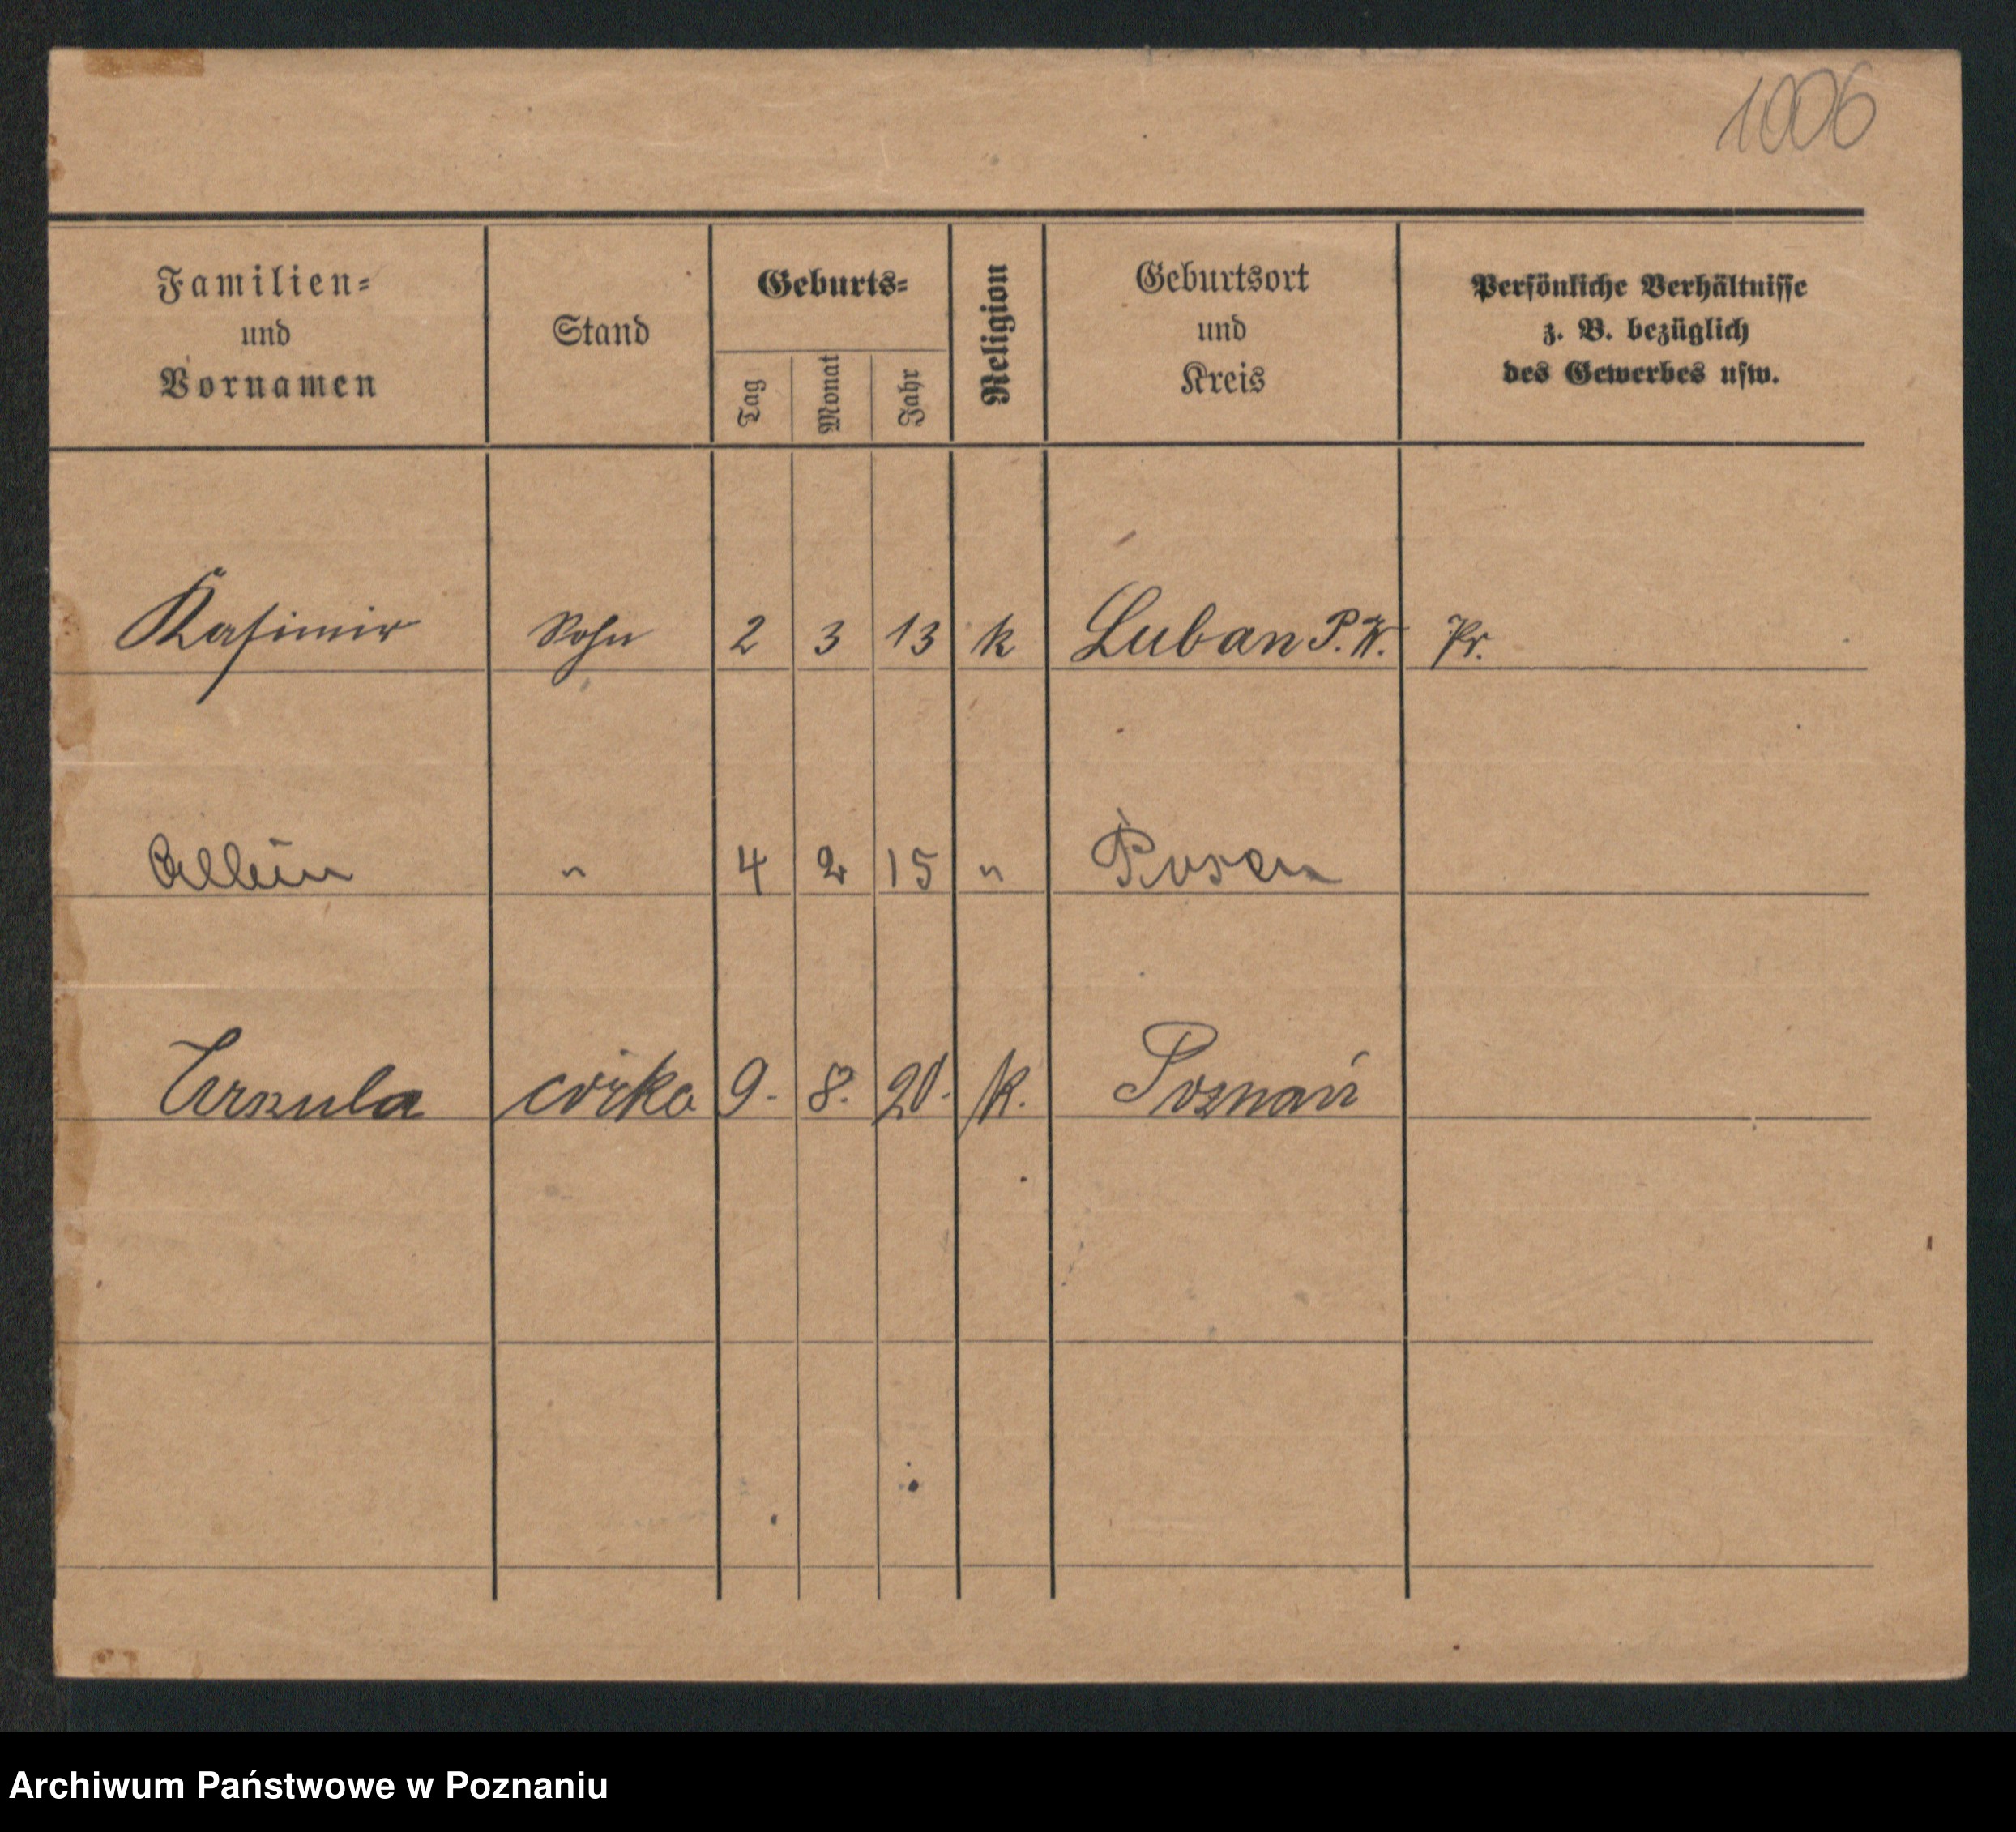 1006
Familien= und Vornamen | Stand | Geburts= Tag Monat Jahr | Religion | Geburtsort und Kreis | Persönliche Verhältnisse z. B. bezüglich des Gewerbes usw.
Kasimir Sohn 2 3 13 k Luban P.W. Pr.
" 4 2 15 " Posen
Urszula córka 9. 8. 20. k. Poznań
Archiwum Państwowe w Poznaniu